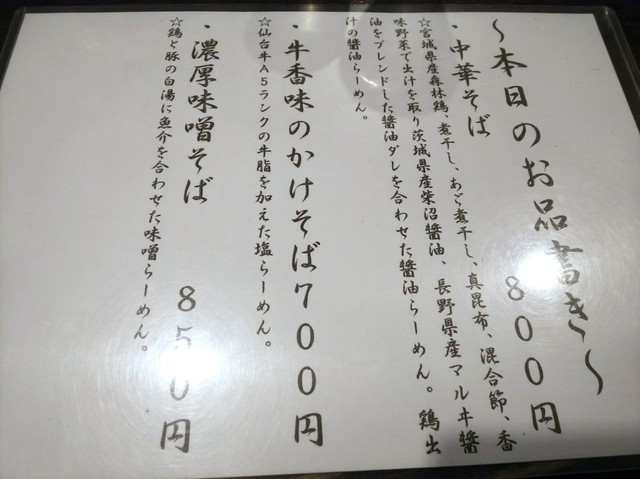 ～本日のお品書き～
・中華そば　８００円
☆宮城県産森林鶏、煮干し、あご煮干し、真昆布、混合節、香
味野菜で出汁を取り茨城県産柴沼醤油、長野県産マルヰ醤
油をブレンドした醤油ダレを合わせた醤油らーめん。鶏出
汁の醤油らーめん。
・牛香味のかけそば７００円
☆仙台牛Ａ５ランクの牛脂を加えた塩らーめん。
・濃厚味噌そば　８５０円
☆鶏と豚の白湯に魚介を合わせた味噌らーめん。